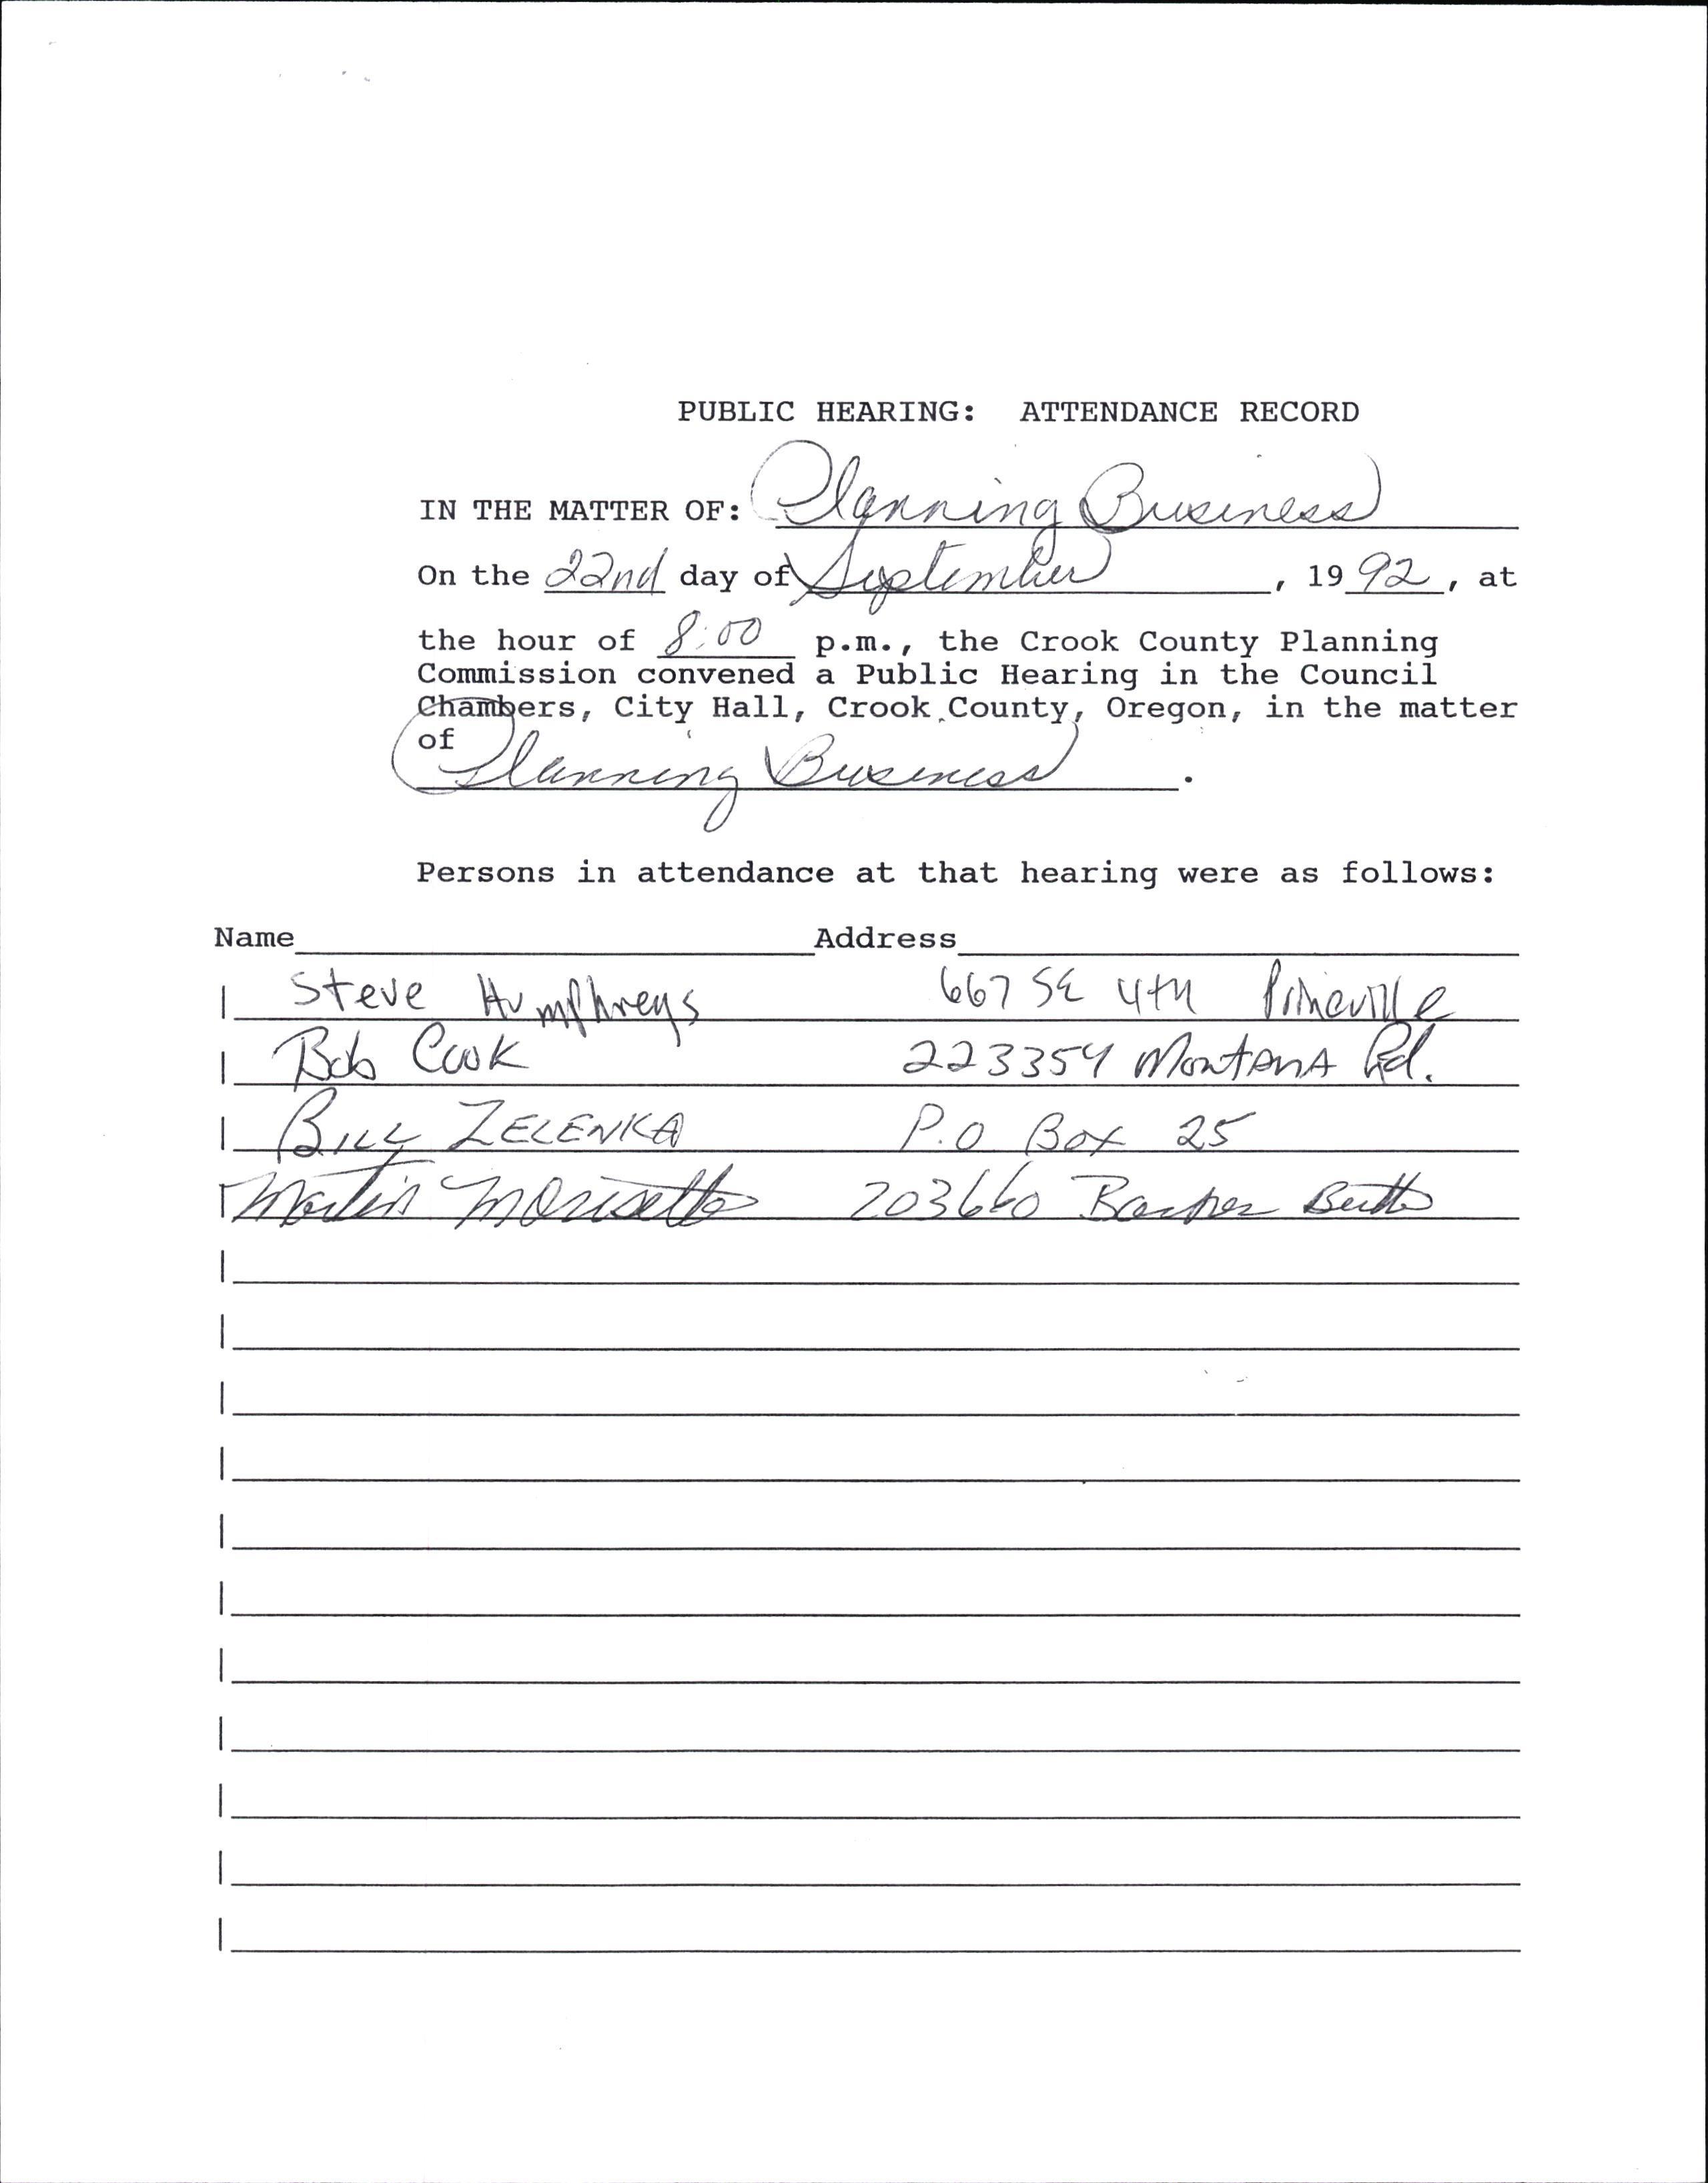 PUBLIC HEARING: ATTENDANCE RECORD
IN THE MATTER OF: Planning Business
On the 22nd day of September, 1992, at
the hour of 8:00 p.m., the Crook County Planning
Commission convened a Public Hearing in the Council
Chambers, City Hall, Crook County, Oregon, in the matter
of
Planning Business.
Persons in attendance at that hearing were as follows:
Name Address
Steve Humphreys 667 SE 4th Prineville
Bob Cook 223354 Montana Rd.
Bill ZELENKA P.O Box 25
Martin Morisette 203660 Butte